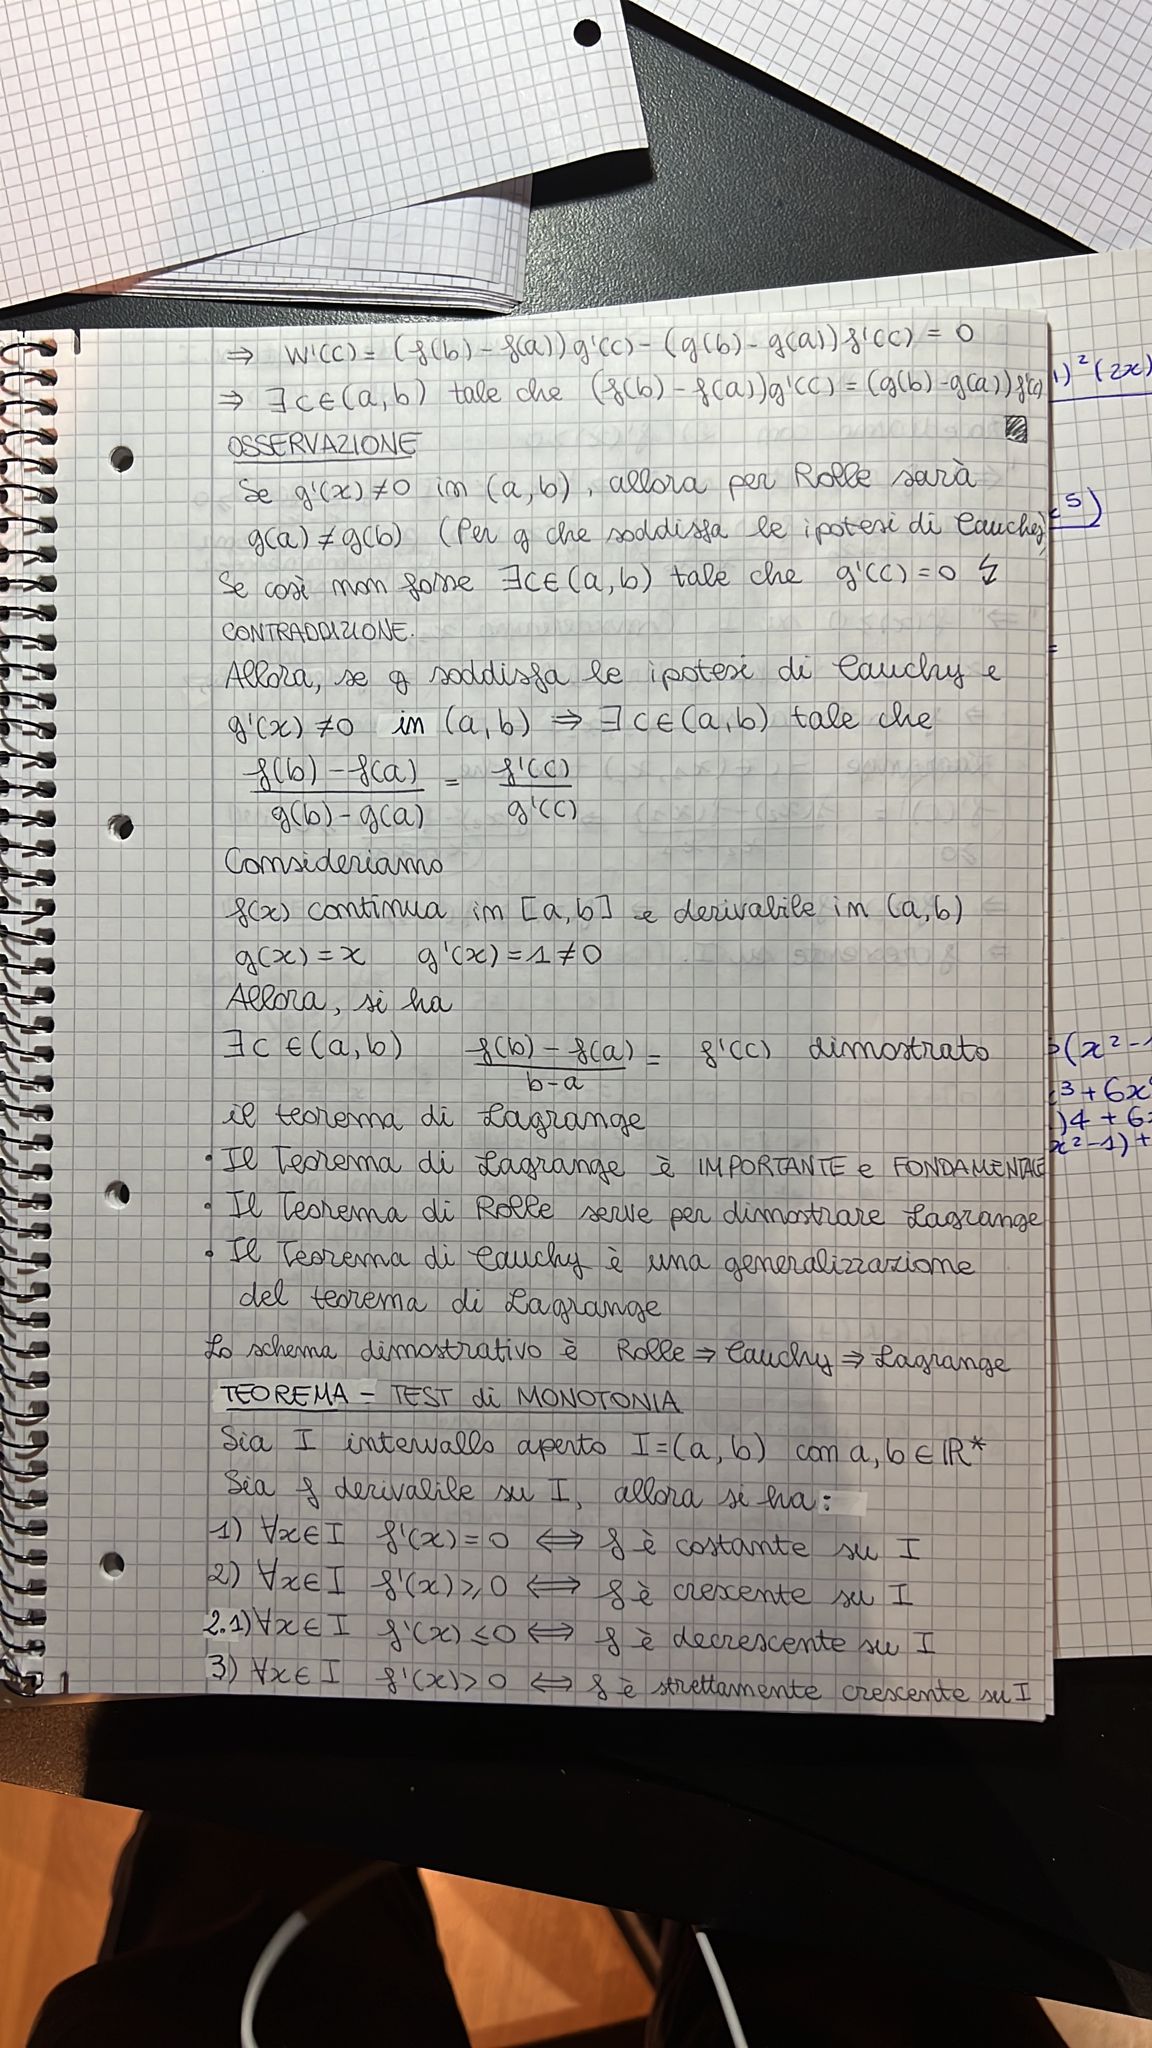 ⇒ W'(c) = (f(b) - f(a)) g'(c) - (g(b) - g(a)) f'(c) = 0
⇒ ∃ c ∈ (a, b) tale che (f(b) - f(a)) g'(c) = (g(b) - g(a)) f'(c)
OSSERVAZIONE
Se g'(x) ≠ 0 in (a, b), allora per Rolle sarà
g(a) ≠ g(b) (Per g che soddisfa le ipotesi di Cauchy)
Se così non fosse ∃ c ∈ (a, b) tale che g'(c) = 0 ↯
CONTRADDIZIONE.
Allora, se g soddisfa le ipotesi di Cauchy e
g'(x) ≠ 0 in (a, b) ⇒ ∃ c ∈ (a, b) tale che
f(b) - f(a) / g(b) - g(a) = f'(c) / g'(c)
Consideriamo
f(x) continua in [a, b] e derivabile in (a, b)
g(x) = x g'(x) = 1 ≠ 0
Allora, si ha
∃ c ∈ (a, b) f(b) - f(a) / b - a = f'(c) dimostrato
il teorema di Lagrange
• Il Teorema di Lagrange è IMPORTANTE e FONDAMENTALE
• Il Teorema di Rolle serve per dimostrare Lagrange
• Il Teorema di Cauchy è una generalizzazione
del teorema di Lagrange
Lo schema dimostrativo è Rolle ⇒ Cauchy ⇒ Lagrange
TEOREMA - TEST di MONOTONIA
Sia I intervallo aperto I = (a, b) con a, b ∈ ℝ*
Sia f derivabile su I, allora si ha:
1) ∀x ∈ I f'(x) = 0 ⟺ f è costante su I
2) ∀x ∈ I f'(x) ≥ 0 ⟺ f è crescente su I
2.1) ∀x ∈ I f'(x) ≤ 0 ⟺ f è decrescente su I
3) ∀x ∈ I f'(x) > 0 ⟺ f è strettamente crescente su I
1)² (2x)
5)
=
(x² - 1
³ + 6x
)4 + 6x
x² - 1) +